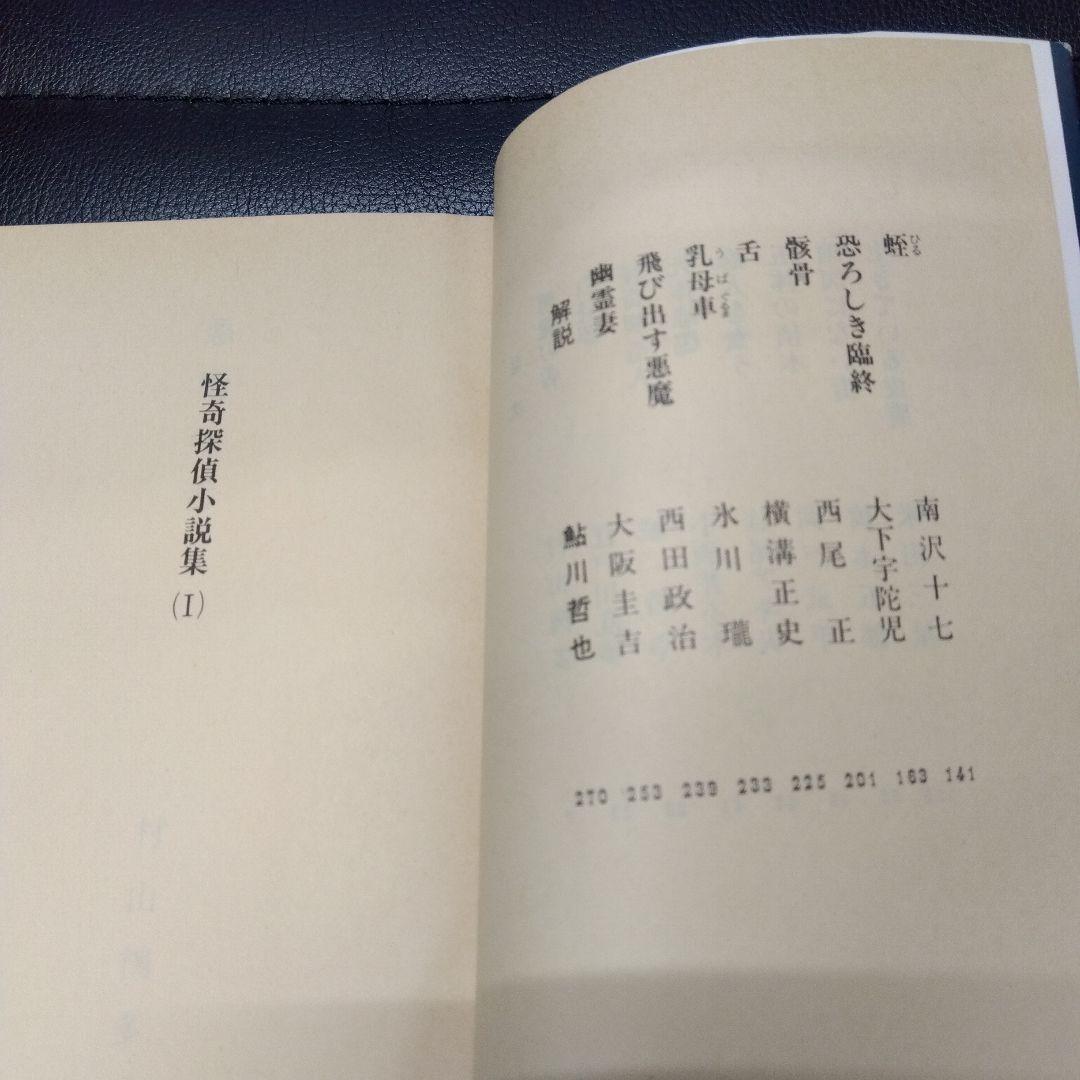 蛭
ひる
南沢十七
141
恐ろしき臨終
大下宇陀児
163
骸骨
西尾正
201
舌
横溝正史
225
乳母車
うばぐるま
氷川瓏
233
飛び出す悪魔
西田政治
239
幽霊妻
大阪圭吉
253
解説
鮎川哲也
270
怪奇探偵小説集
(I)